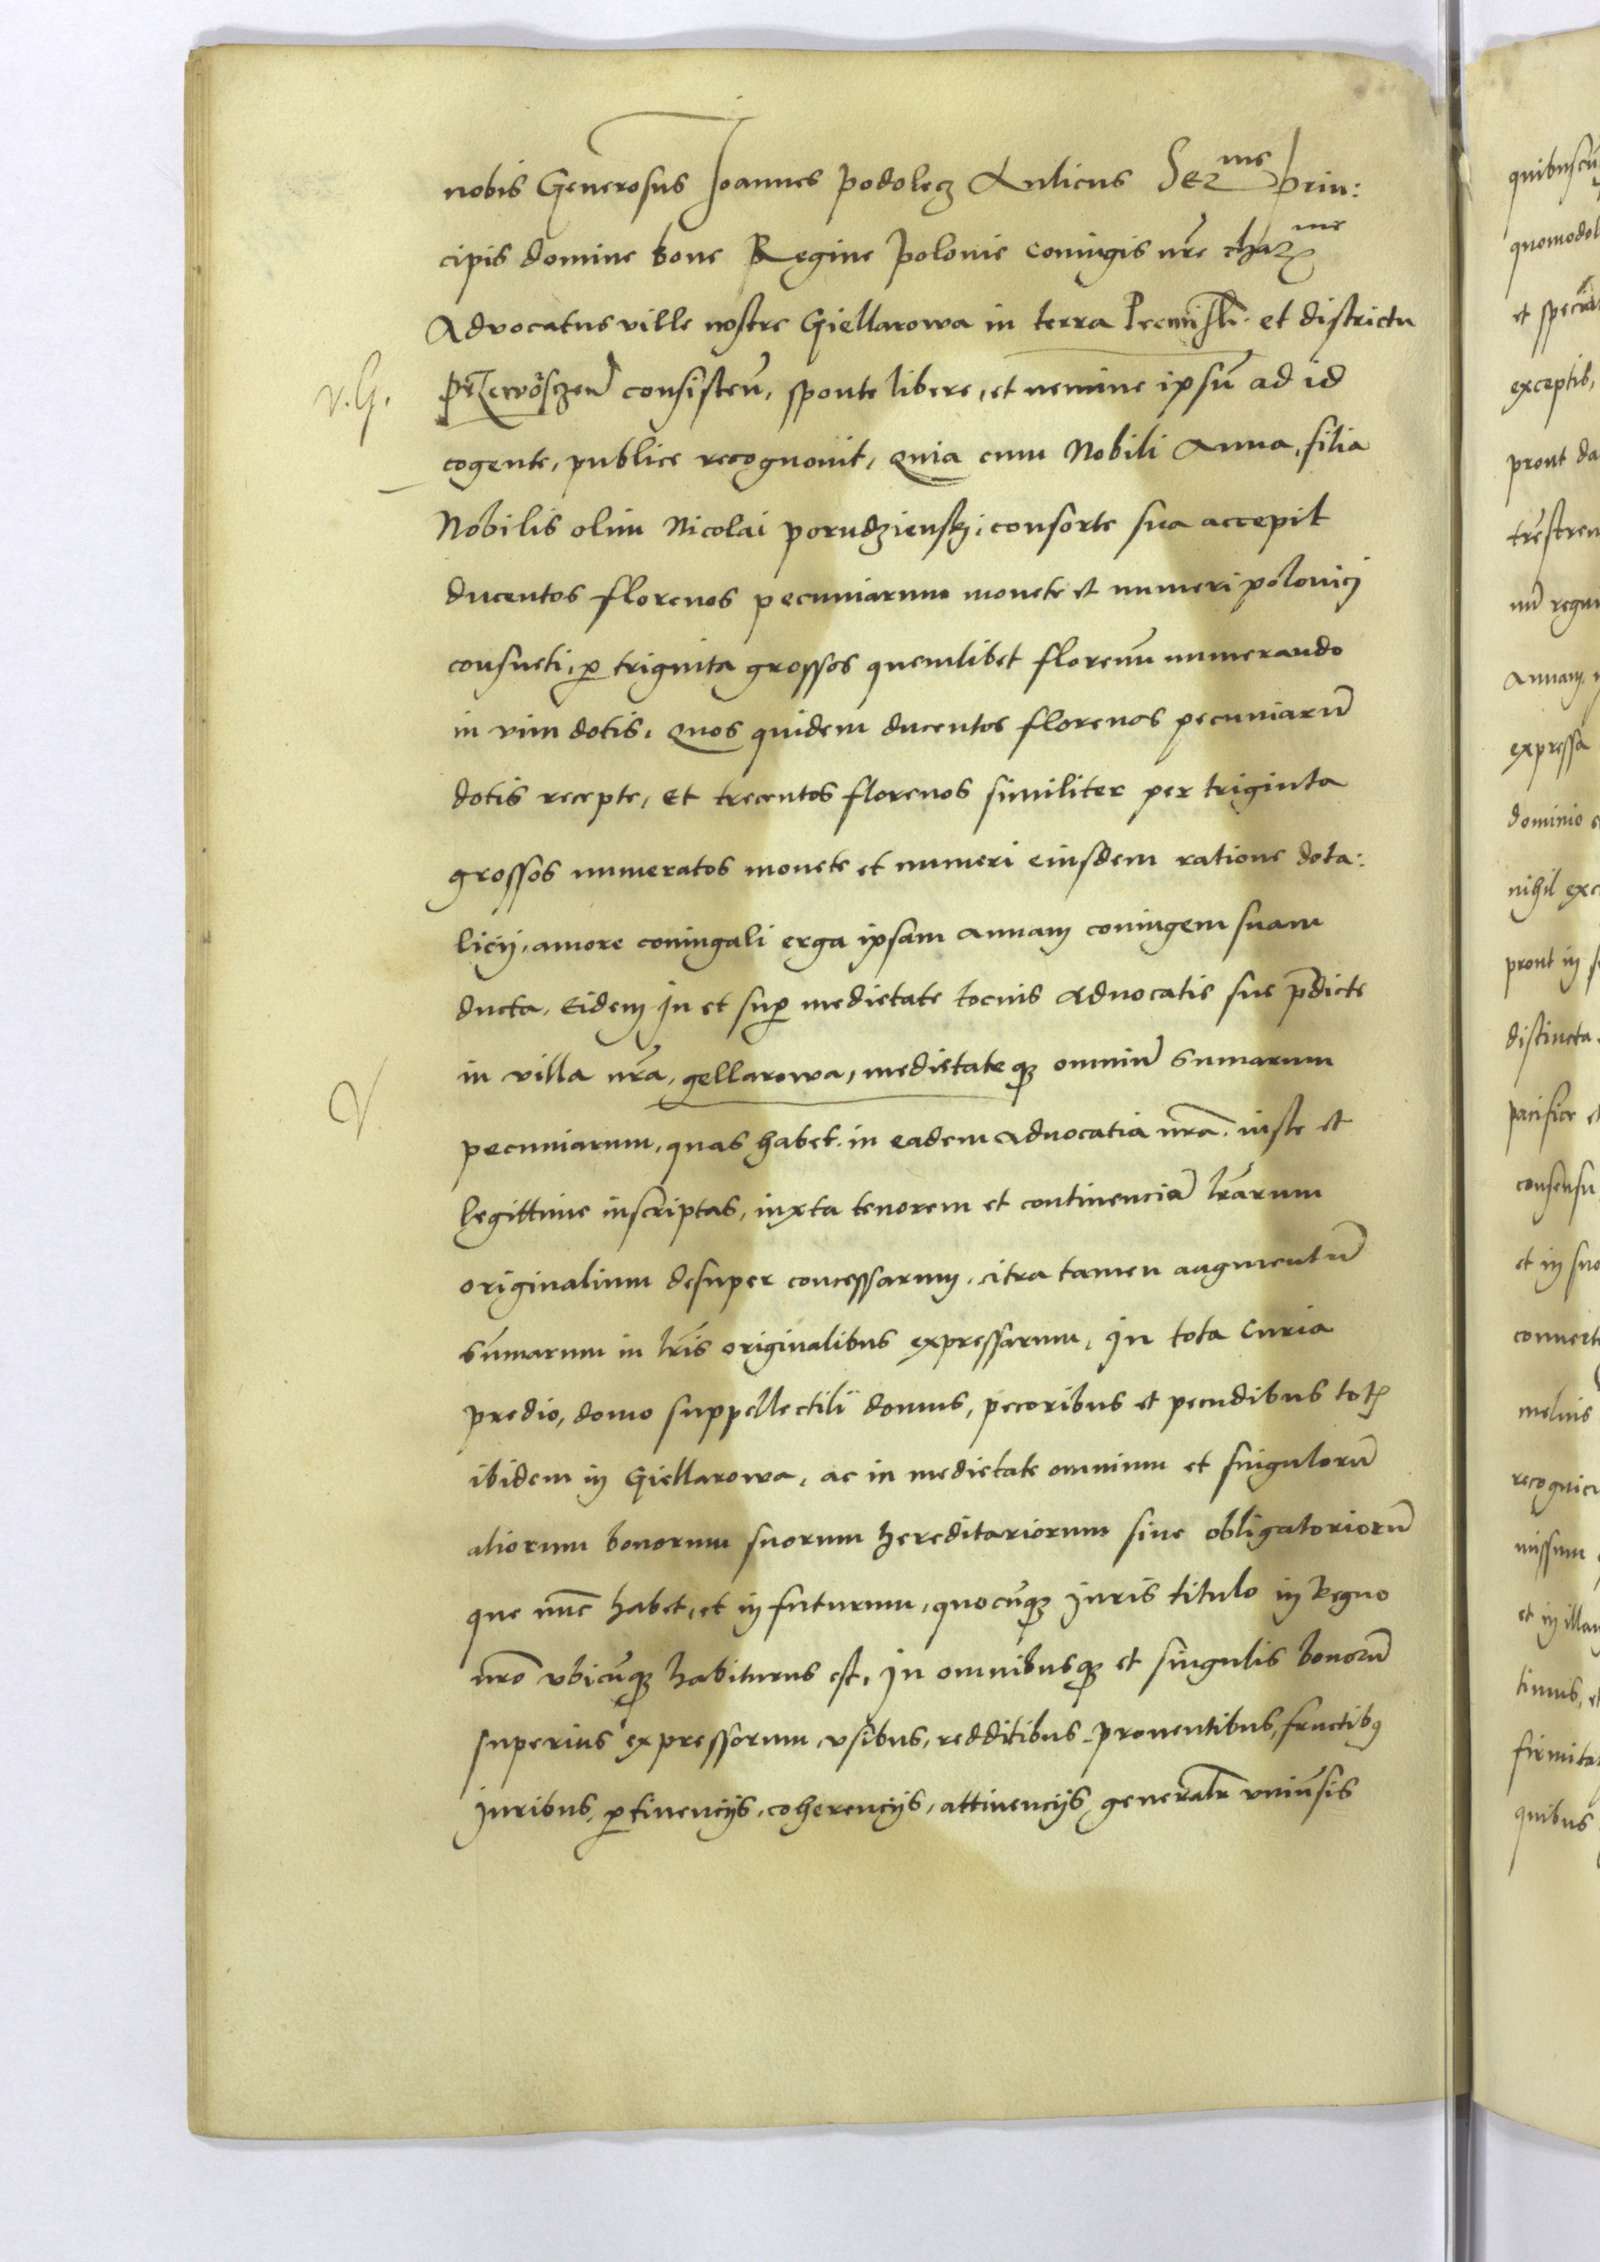 nobis Generosus Joannes Podolecz Aulicus Ser^me prin:
cipis domine bone Regine Polonie coniugis nr̃e char^me
Advocatus ville nostre Giellarowa in terra Premisli. et districtu
v. G.
Przeworscen̄ consisten̄, sponte libere, et nemine ipsū ad id
cogente, publice recognovit, Quia cum Nobili Anna, filia
Nobilis olim Nicolai porudzienskj, consorte sua accepit
ducentos florenos pecuniarum monete et numeri polonicj
consueti, p̱ triginta grossos quemlibet florenū numerando
in vim dotis. Quos quidem ducentos florenos pecuniarū
dotis recepte, et trecentos florenos similiter per triginta
grossos numeratos monete et numeri eiusdem ratione dota:
licij, amore coniugali erga ipsam Annam coniugem suam
ducta, Eidem In et sup̱ medietate tocius Advocatie sue p̄dicte
in villa nr̃a, gellarowa, medietateqꝫ omniū summarum
V
pecuniarum, quas habet. in eadem Advocatia nr̃a. iuste et
legittime inscriptas, iuxta tenorem et continenciā lr̃arum
originalium desuper concessarum, citra tamen augmentū
sūmarum in lr̃is originalibus expressarum, In tota Curia
predio, domo suppellectili domus, pecoribus et pecudibus totꝫ
ibidem in Giellarowa, ac in medietate omnium et singulorū
aliorum bonorum suorum hereditariorum sive obligatoriorū
que nūc habet, et in futurum, quocūqꝫ juris titulo in Regno
nr̃o vbicūqꝫ habiturus est, In omnibusqꝫ et singulis bonorū
superius expressorum, vsibus, redditibus. proventibus, fructibꝰ
juribus, p̱tinencijs, coherencijs, attinencijs generalr̃ vniūsis
quibuscū
et specia
exceptib,
prout da
Annam
expressa
dominio
nihil exc
prout in
distincta.
pacifice et
consensu
et in suo
convert
melius
recognici
missum
et in illam
timus, et
firmita
quibus